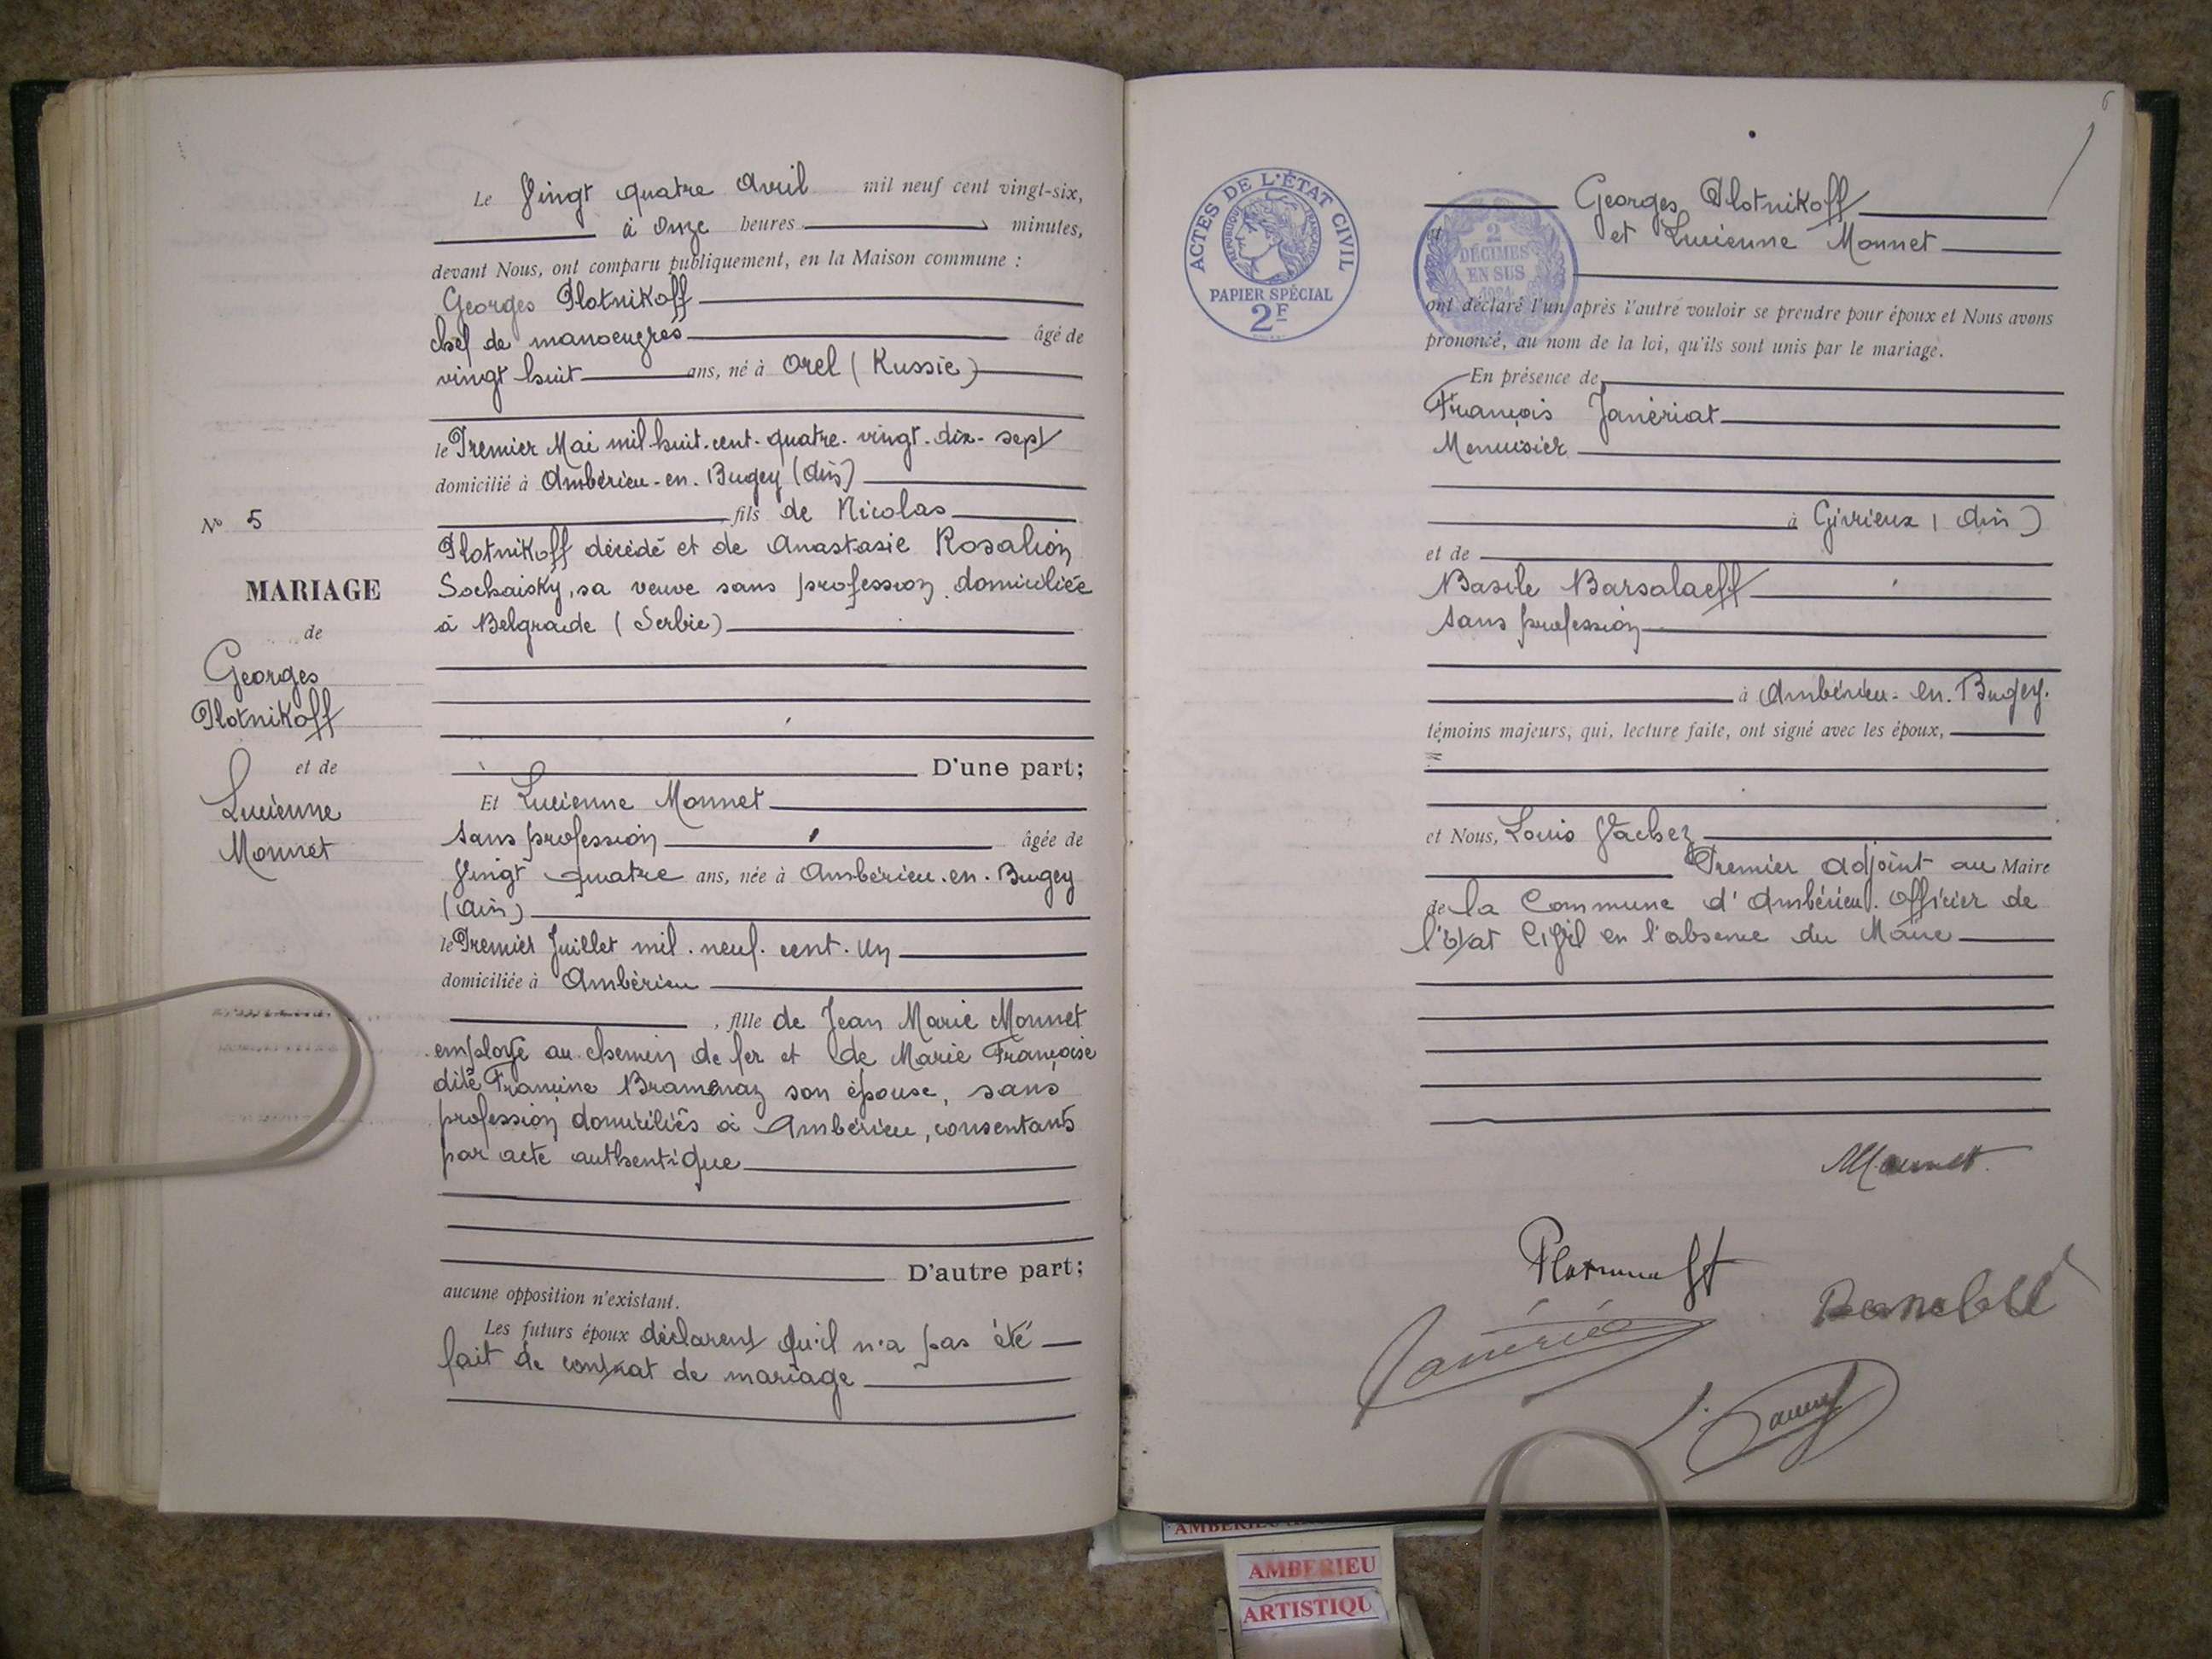 N° 5
MARIAGE
de
Georges
Plotnikoff
et de
Lucienne
Monnet
Le Vingt quatre Avril mil neuf cent vingt-six,
à Onze heures minutes,
devant Nous, ont comparu publiquement, en la Maison commune :
Georges Plotnikoff
chef de manoeuvres âgé de
vingt huit ans, né à Orel (Russie)
le Premier Mai mil-huit-cent-quatre-vingt-dix-sept
domicilié à Ambérieu-en-Bugey (Ain)
fils de Nicolas
Plotnikoff décédé et de Anastasie Rosalion
Sochaisky, sa veuve sans profession domiciliée
à Belgrade (Serbie)
D'une part;
Et Lucienne Monnet
sans profession âgée de
Vingt quatre ans, née à Ambérieu-en-Bugey
(Ain)
le Premier Juillet mil-neuf-cent-un
domiciliée à Ambérieu
, fille de Jean Marie Monnet
employé au chemin de fer et de Marie Françoise
dite Francine Bramenaz son épouse, sans
profession domiciliés à Ambérieu, consentants
par acte authentique
D'autre part;
aucune opposition n'existant.
Les futurs époux déclarent qu'il n'a pas été
fait de contrat de mariage
6
ACTES DE L'ÉTAT CIVIL
RÉPUBLIQUE FRANÇAISE
PAPIER SPÉCIAL
2F
2
DÉCIMES
EN SUS
Georges Plotnikoff
et Lucienne Monnet
ont déclaré l'un après l'autre vouloir se prendre pour époux et Nous avons
prononcé, au nom de la loi, qu'ils sont unis par le mariage.
En présence de
François Janériat
Menuisier
à Givrieux (Ain)
et de
Basile Barsalaeff
sans profession
à Ambérieu-en-Bugey.
témoins majeurs, qui, lecture faite, ont signé avec les époux,
et Nous, Louis Vachez
Premier adjoint au Maire
de la Commune d'Ambérieu. Officier de
l'état Civil en l'absence du Maire
Monnet
AMBERIEU
ARTISTIQU